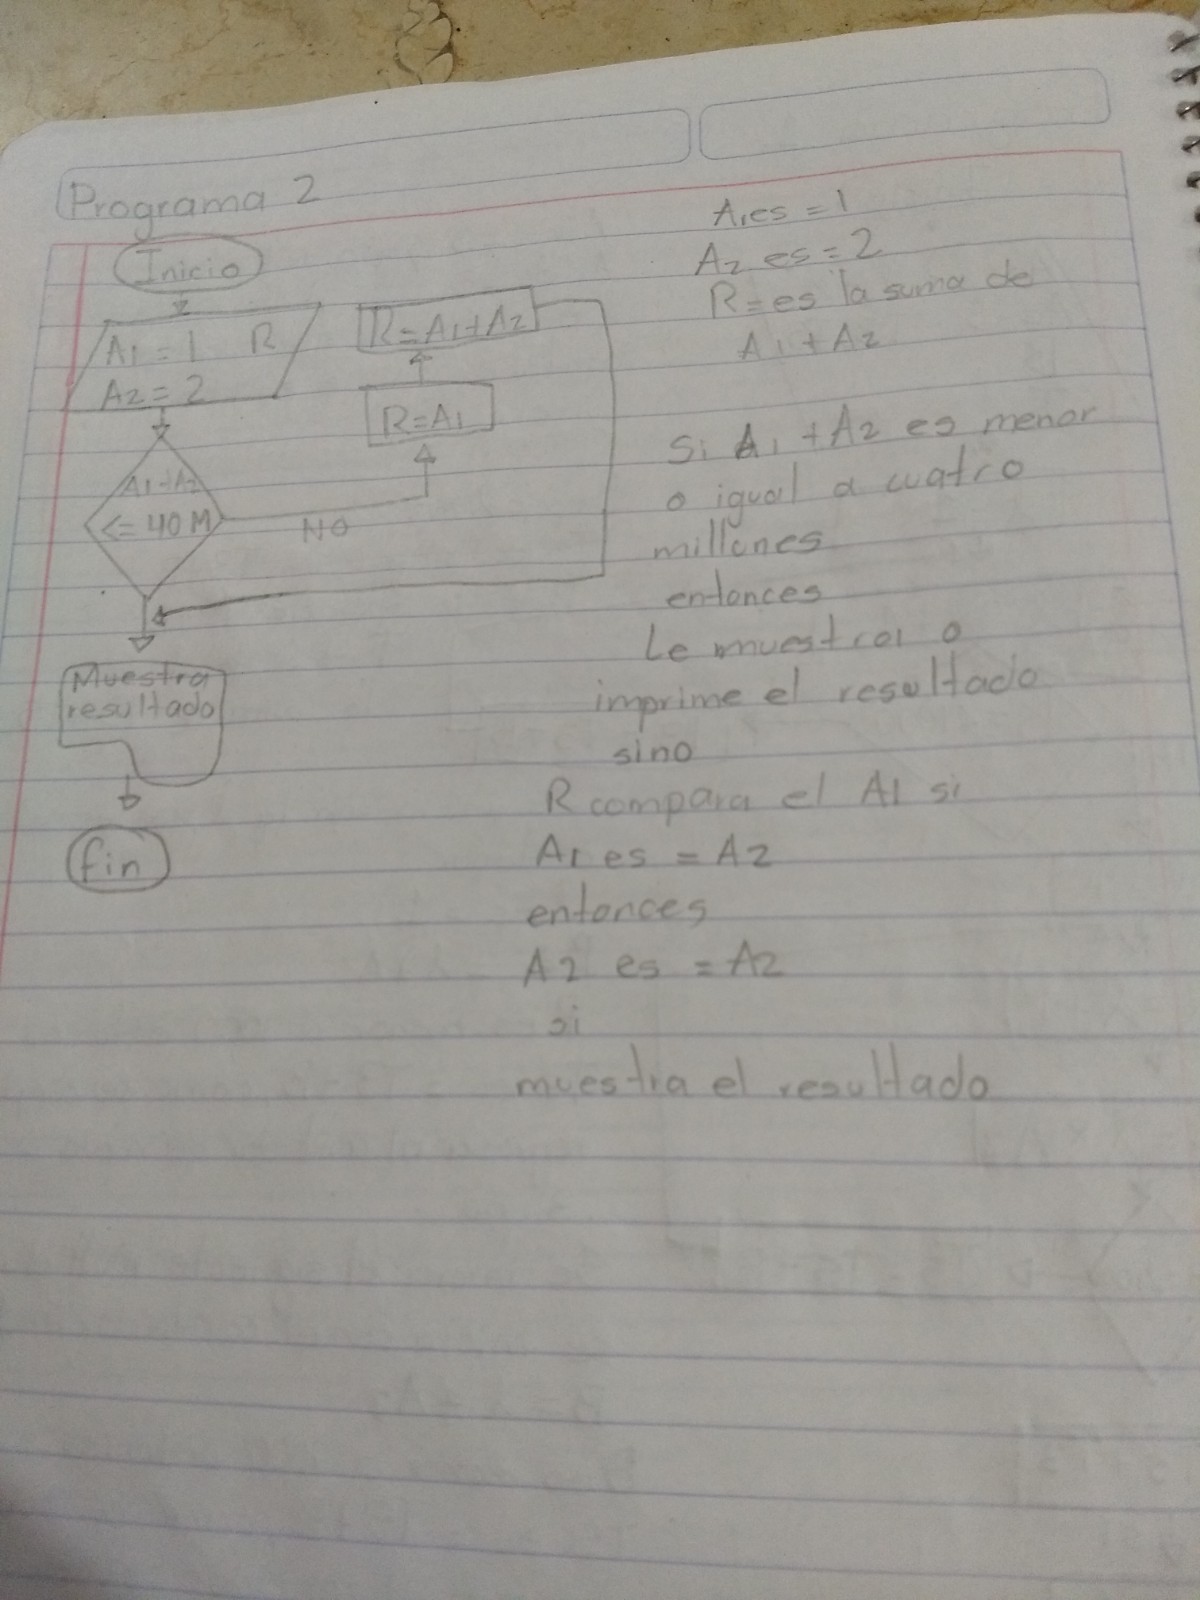 Programa 2
Inicio
A1 = 1 R
A2 = 2
R=A1+A2
R=A1
A1+A2
<= 40 M
NO
Muestra
resultado
fin
A1es = 1
A2 es = 2
R=es la suma de
A1 + A2
Si A1 + A2 es menor
o igual a cuatro
millones
entonces
Le muestra o
imprime el resultado
sino
R compara el A1 si
A1 es = A2
entonces
A2 es = A2
si
muestra el resultado